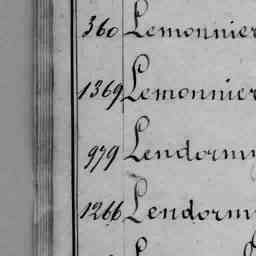 360 Lemonnier
1369 Lemonnier
979 Lendormy
1266 Lendorm